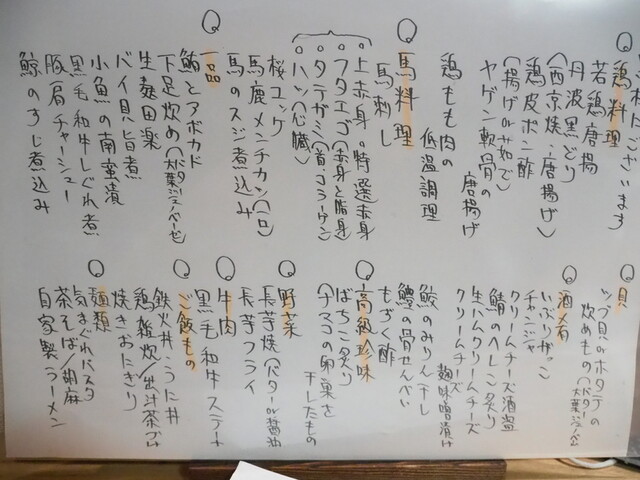 鶏料理
若鶏唐揚
丹波黒どり
(西京焼・唐揚げ)
鶏皮ポン酢
(揚げor茹で)
ヤゲン軟骨の
唐揚げ
鶏もも肉の
低温調理
馬料理
馬刺し
・上赤身・特選赤身
・フタエゴ(赤身と脂身)
・タテガミ(首コラーゲン)
・ハツ(心臓)
桜ユッケ
馬鹿メンチカツ(一口)
馬のスジ煮込み
一品
鮪とアボカド
下足炊め(バター大葉ジェノベーゼ)
生麩田楽
バイ貝旨煮
小魚の南蛮漬
黒毛和牛しぐれ煮
豚肩チャーシュー
鯨のすじ煮込み
貝
ツブ貝orホタテの
炊めもの(バター大葉ジェノベ)
酒肴
いぶりがっこ
チャンジャ
クリームチーズ酒盗
鯖のへしこ炙り
生ハムクリームチーズ
クリームチーズ
麹味噌漬け
鮫のみりん干し
鱧の骨せんべい
もずく酢
高級珍味
ばちこ炙り
(ナマコの卵巣を
干したもの
野菜
長芋焼(バターor醤油
長芋フライ
牛肉
黒毛和牛ステーキ
ご飯もの
鉄火丼・うに丼
鶏雑炊/出汁茶づけ
焼きおにぎり
麺類
気まぐれパスタ
茶そば/胡麻
自家製ラーメン